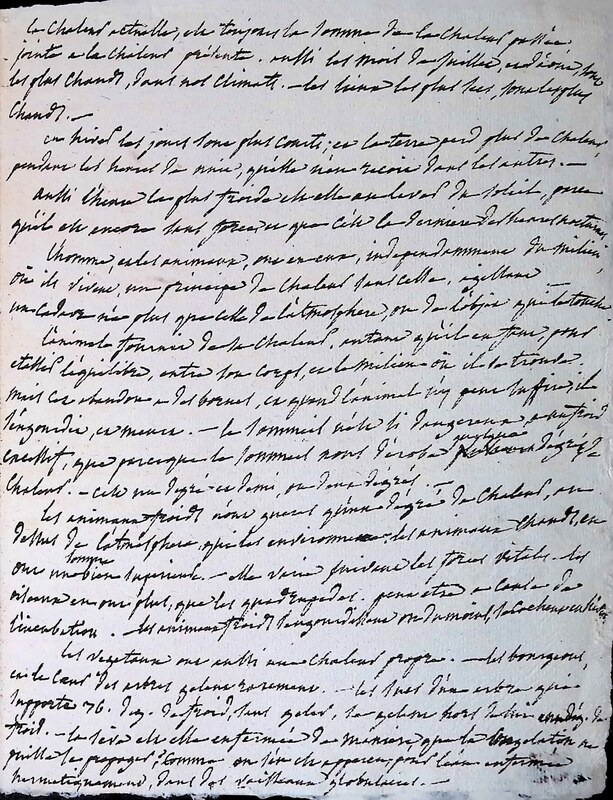 la chaleur actuelle, est toujours la somme de la chaleur passée,
jointe a la chaleur présente. aussi les mois de juillet, et d'août, sont
les plus chauds, dans nos climats. — les lieux les plus bas, sont les plus
chauds. —
en hiver les jours sont plus courts, et la terre perd plus de chaleur,
pendant les heures de nuit, qu'elle n'en reçoit dans les autres. —
aussi l'heure la plus froide est elle au lever du soleil, parce
qu'il est encore sans force et que c'est la derniere des heures nocturnes
l'homme, et les animaux, ont en eux, indépendamment du milieu,
où ils vivent, un principe de chaleur sans cesse, agissant
un cadavre n'a plus que celle de l'atmosphère, ou de l'objet qui le touche
l'animal fournit de sa chaleur, autant qu'il en faut, pour
etablir l'équilibre, entre son corps, et le milieu où il se trouve
mais cet abandon a des bornes, et quand l'animal n'y peut suffire il
s'engourdit, et meurt. — le sommeil n'est si dangereux, a un froid
excessif, que parceque le sommeil nous dérobe quelques degrés de
chaleur. — c'est un degré et demi, ou deux degrés. —
les animaux froids n'ont guères qu'un dégré de chaleur, au
dessus de l'atmosphère, qui les environne les animaux chauds, en
ont une somme bien supérieure. — elle varie suivant les forces vitales. les
oiseaux en ont plus, que les quadrupedes. peut être a cause de
l'incubation. les animaux froids s'engourdissent ou du moins, se cachent en hiver
les vegetaux ont aussi une chaleur propre. — les bourgeons,
et le coeur des arbres gelent rarement. — les sucs d'un arbre qui a
supporté 76. deg. de froid, sans geler, se gelent hors de lui de
froid. — la sève est elle enfermée de manière que la congelation ne
puisse se propager? comme on s'en est apperçu, pour l'eau enfermée
hermetiquement, dans des vaisseaux globulaires. —